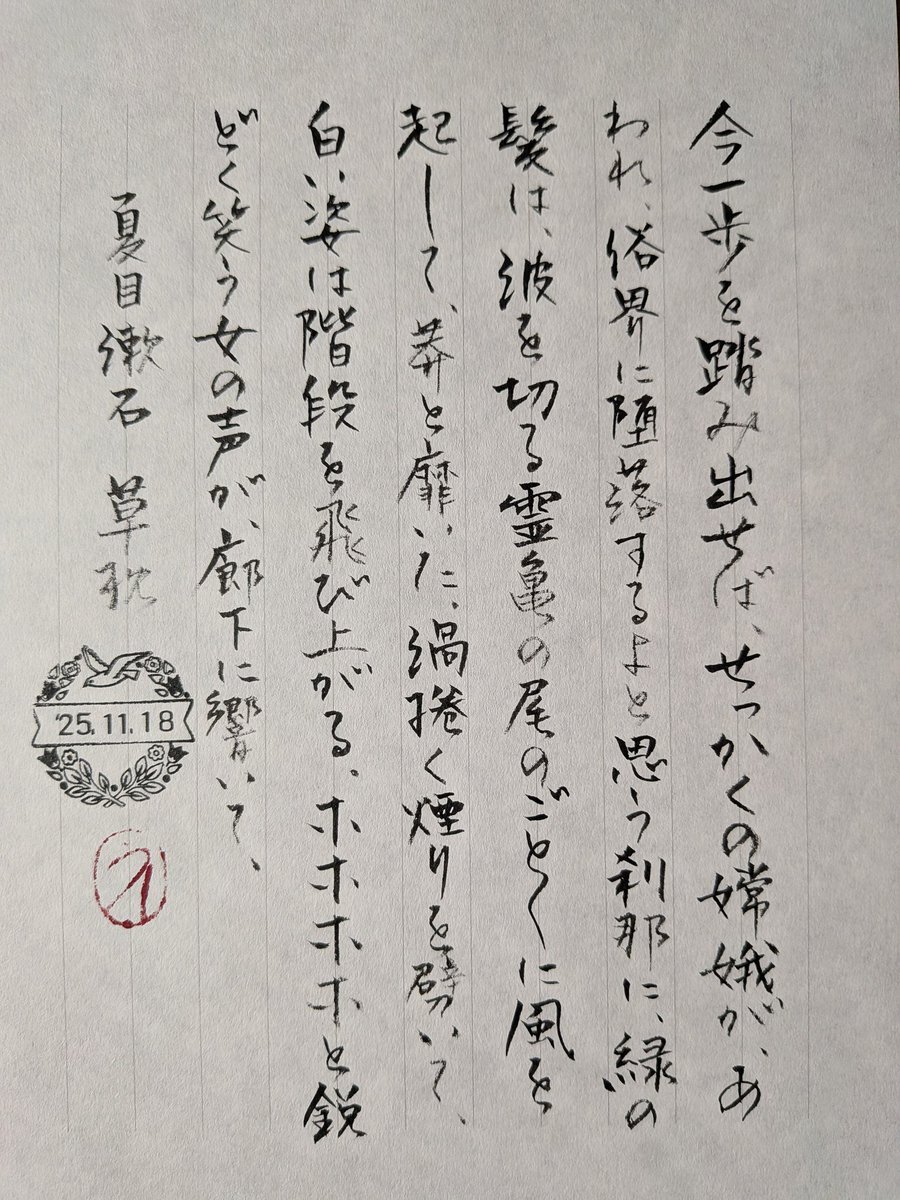 今一歩を踏み出せば、せっかくの嫦娥が、あ
われ、俗界に堕落するよと思う刹那に、緑の
髪は、波を切る霊亀の尾のごとくに風を
起して、莽と靡いた、渦捲く煙りを劈いて、
白い姿は階段を飛び上がる、ホホホホと鋭
どく笑う女の声が、廊下に響いて、
夏目漱石 草枕
'25.11.18